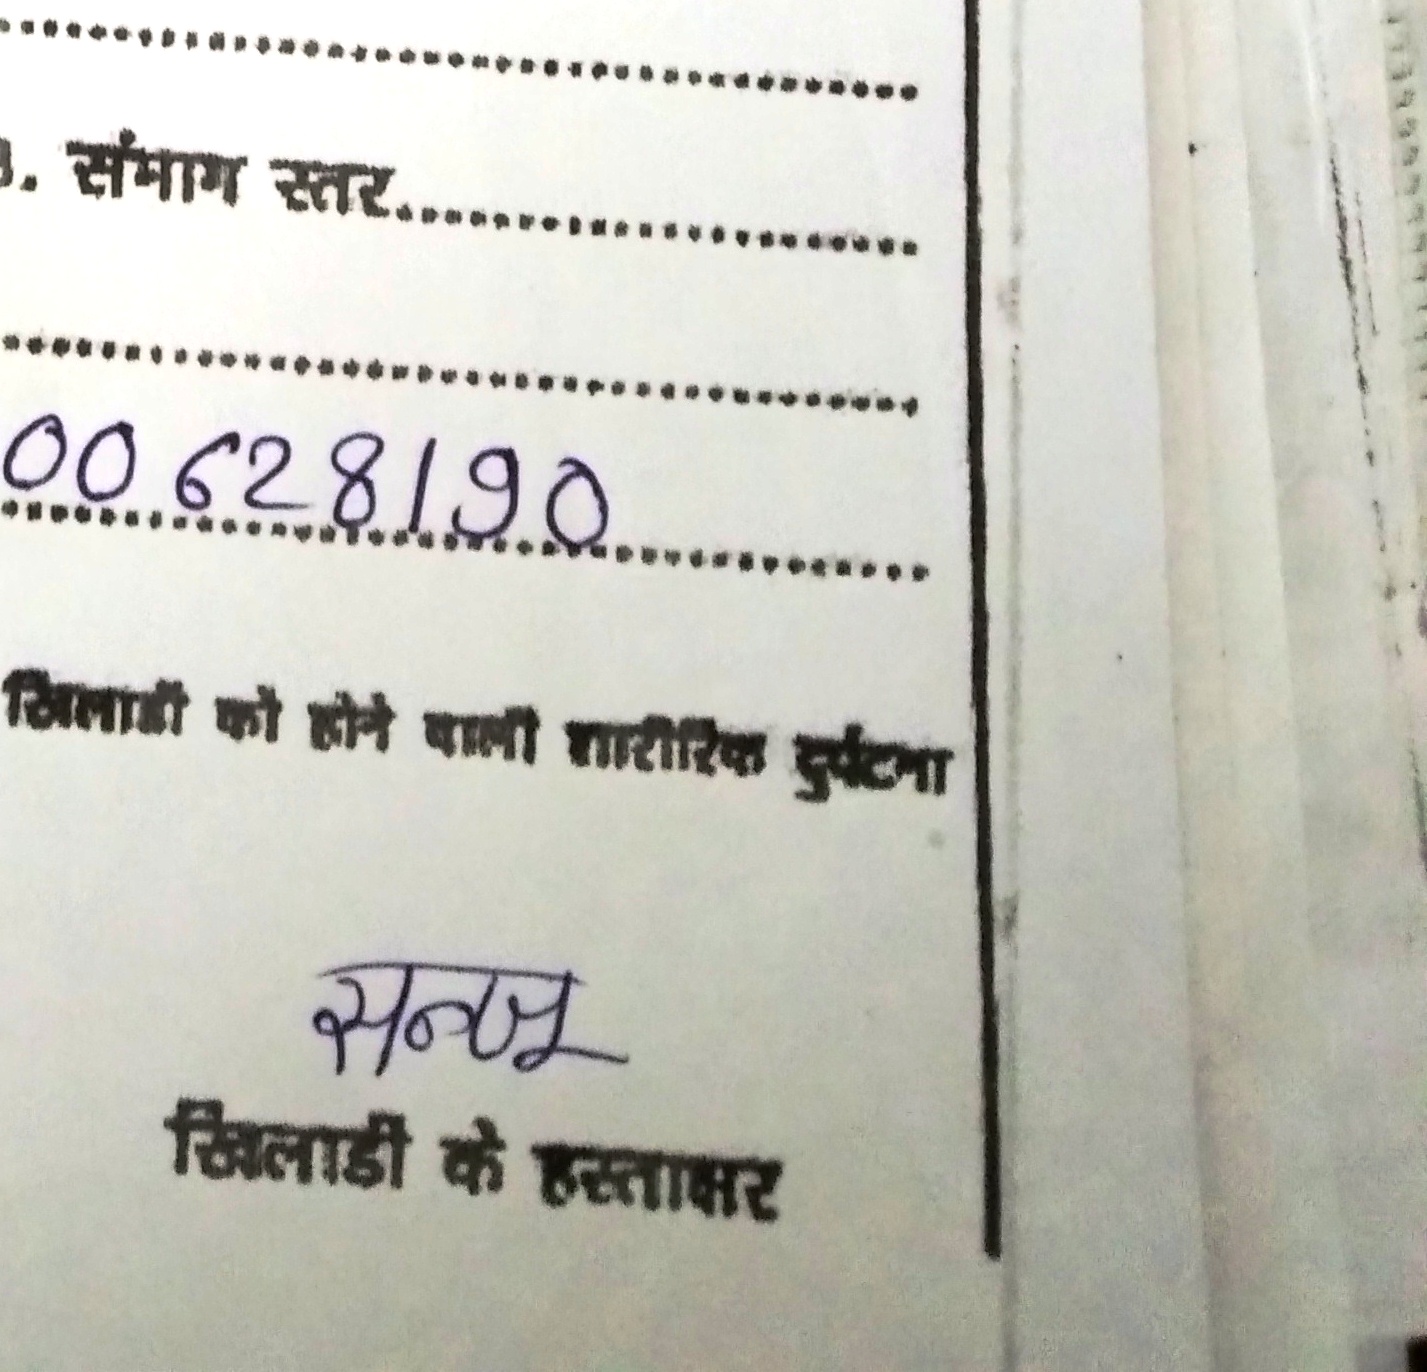 3. संभाग स्तर..........................
00628190
खिलाडी को होने वाली शारीरिक दुर्घटना
सन्जू
खिलाडी के हस्ताक्षर